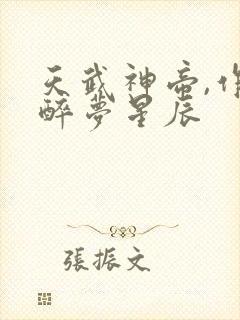 天武神帝,作
醉夢星辰
張振文